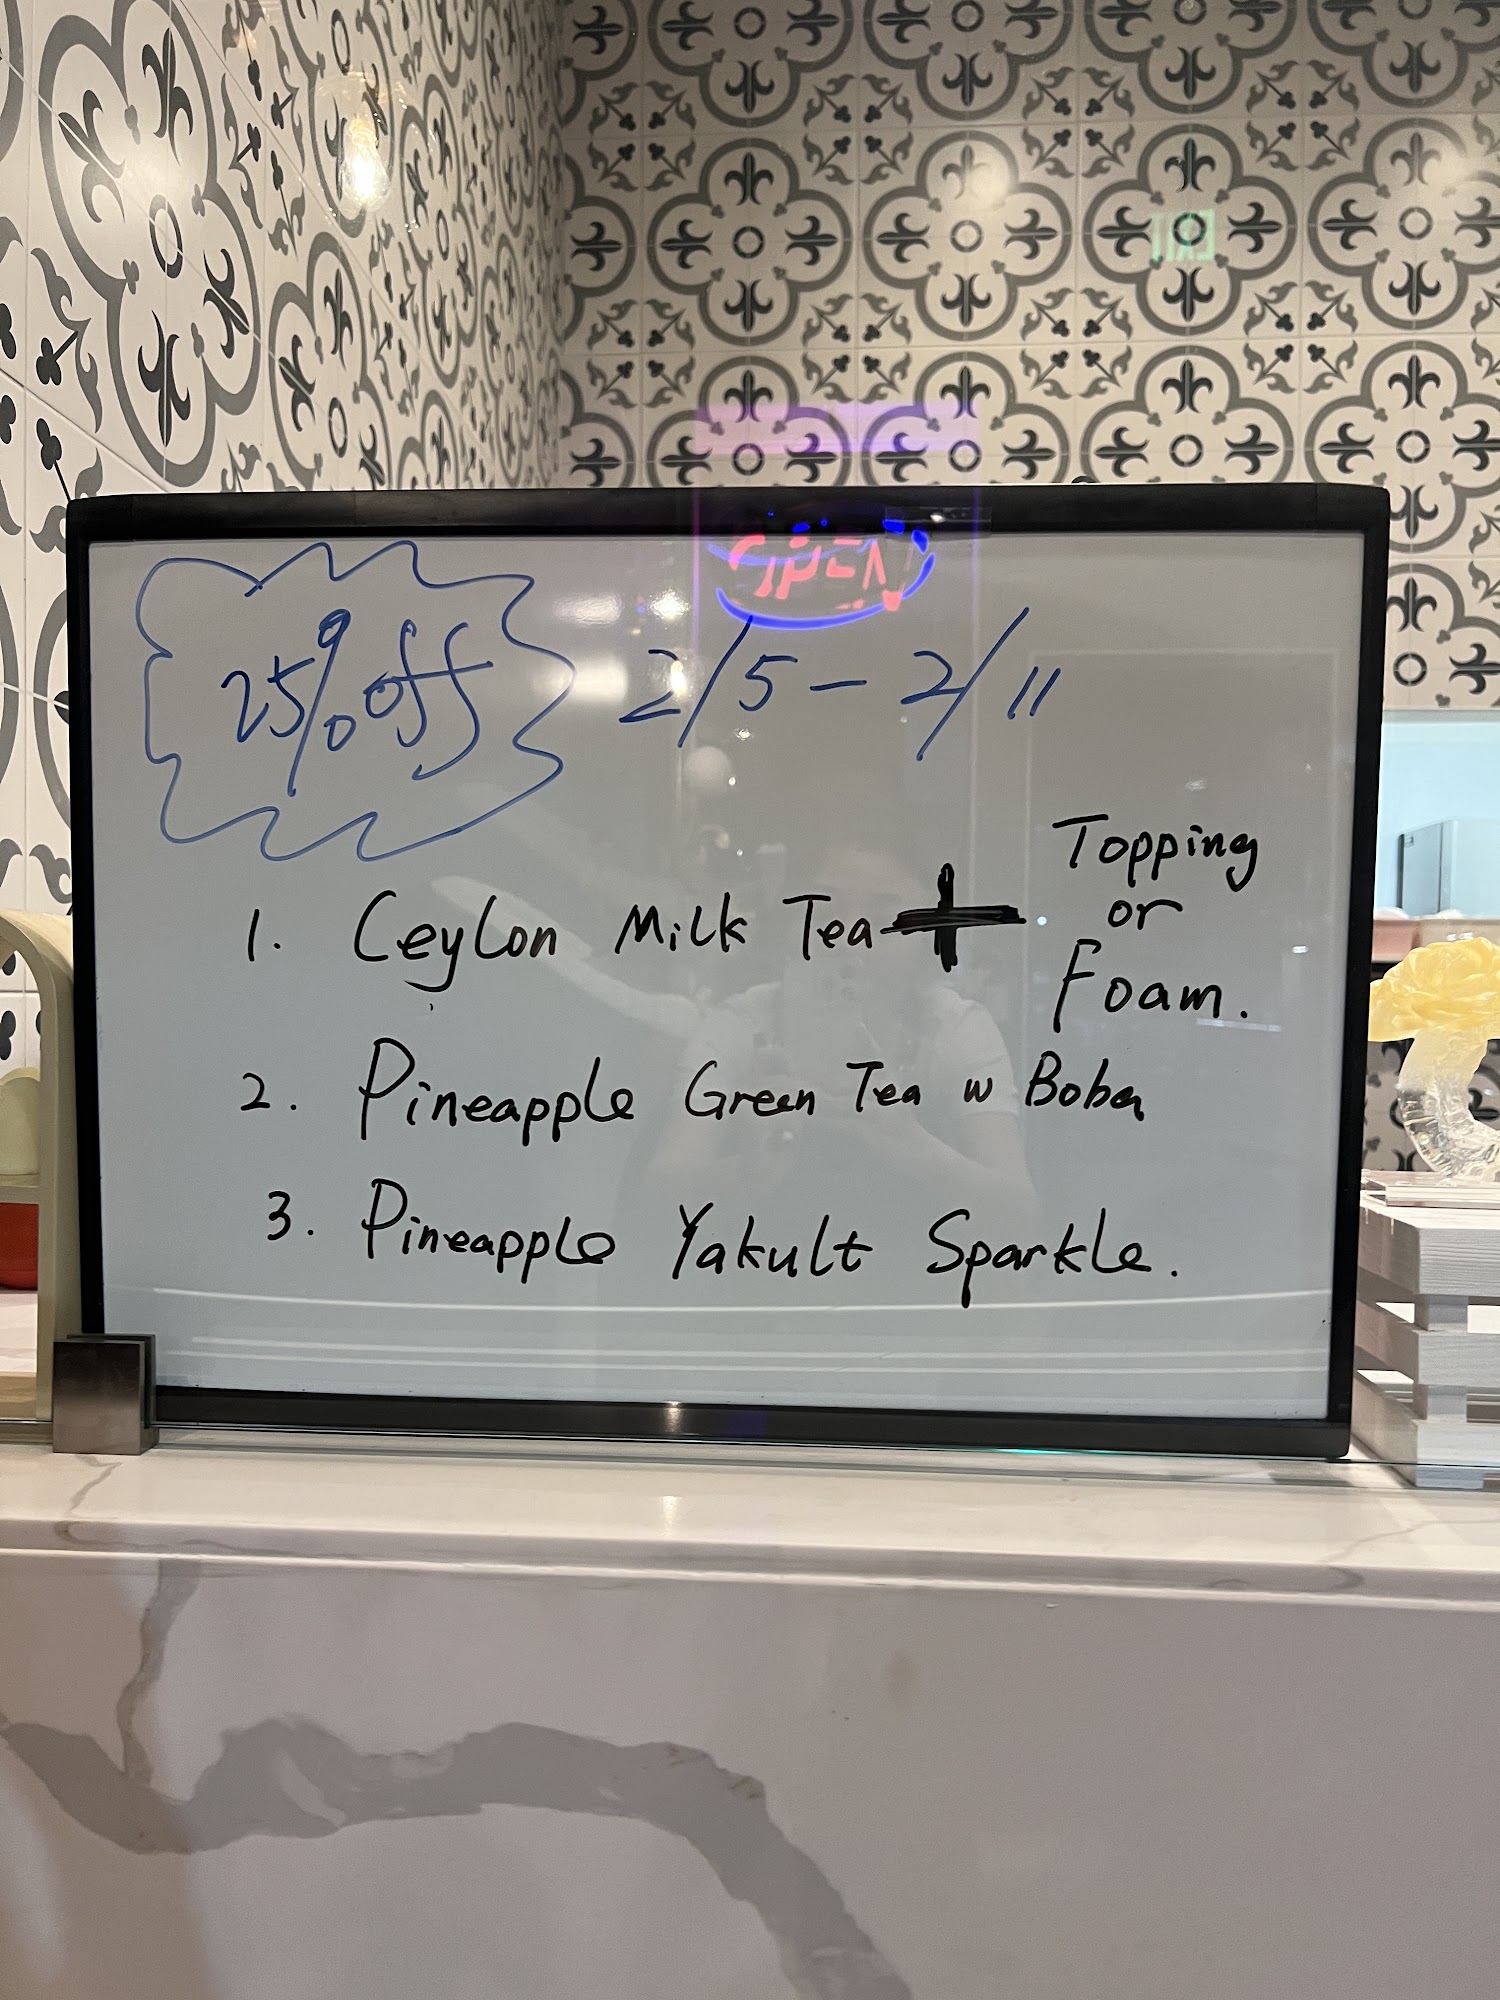 25% off 2/5 - 2/11
1. Ceylon Milk Tea + Topping or Foam.
2. Pineapple Green Tea w Boba
3. Pineapple Yakult Sparkle.